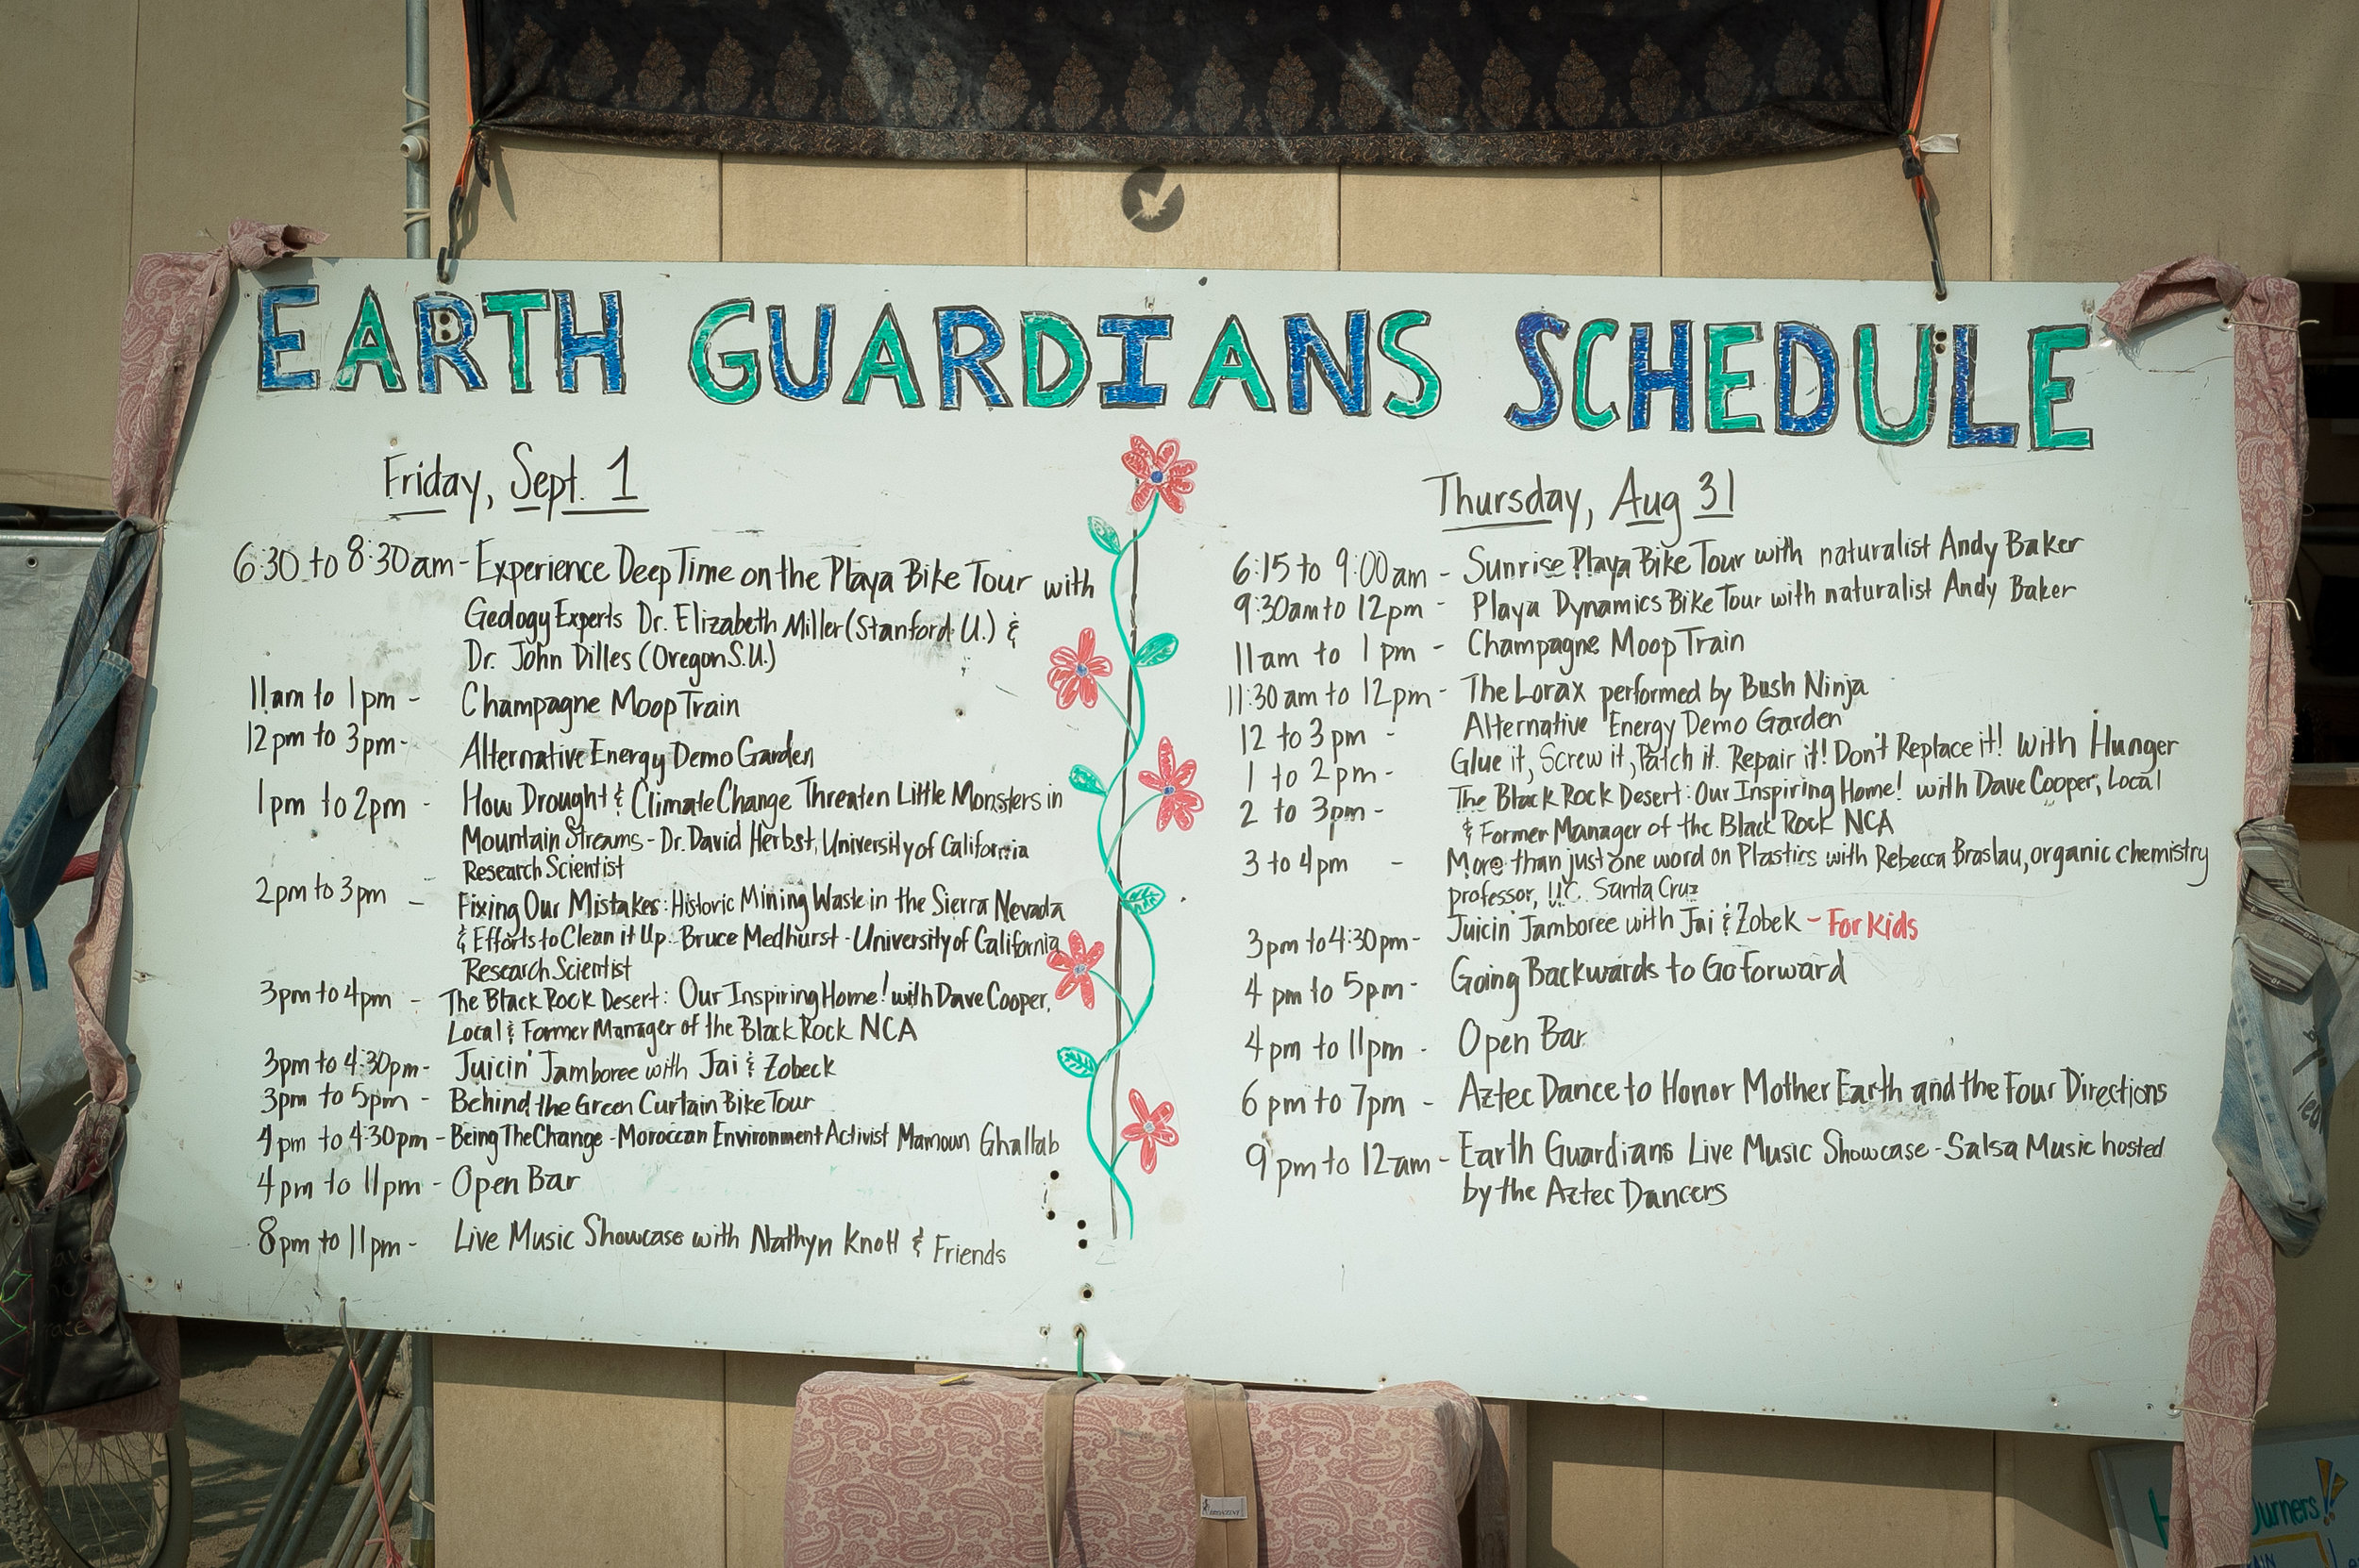 EARTH GUARDIANS SCHEDULE
Friday, Sept. 1
6:30 to 8:30am - Experience Deep Time on the Playa Bike Tour with
Geology Experts Dr. Elizabeth Miller (Stanford U.) &
Dr. John Dilles (Oregon S.U.)
11am to 1pm - Champagne Moop Train
12pm to 3pm - Alternative Energy Demo Garden
1pm to 2pm - How Drought & Climate Change Threaten Little Monsters in
Mountain Streams - Dr. David Herbst, University of California
Research Scientist
2pm to 3pm - Fixing Our Mistakes: Historic Mining Waste in the Sierra Nevada
& Efforts to Clean it Up - Bruce Medhurst - University of California
Research Scientist
3pm to 4pm - The Black Rock Desert: Our Inspiring Home! with Dave Cooper,
Local & Former Manager of the Black Rock NCA
3pm to 4:30pm - Juicin' Jamboree with Jai & Zobeck
3pm to 5pm - Behind the Green Curtain Bike Tour
4pm to 4:30pm - Being The Change - Moroccan Environment Activist Mamoun Ghallab
4pm to 11pm - Open Bar
8pm to 11pm - Live Music Showcase with Nathyn Knott & Friends
Thursday, Aug 31
6:15 to 9:00am - Sunrise Playa Bike Tour with naturalist Andy Baker
9:30am to 12pm - Playa Dynamics Bike Tour with naturalist Andy Baker
11am to 1pm - Champagne Moop Train
11:30am to 12pm - The Lorax performed by Bush Ninja
12 to 3pm - Alternative Energy Demo Garden
1 to 2pm - Glue it, Screw it, Patch it. Repair it! Don't Replace it! with Hunger
2 to 3pm - The Black Rock Desert: Our Inspiring Home! with Dave Cooper, Local
& Former Manager of the Black Rock NCA
3 to 4pm - More than just one word on Plastics with Rebecca Braslau, organic chemistry
professor, U.C. Santa Cruz
3pm to 4:30pm - Juicin' Jamboree with Jai & Zobek - For Kids
4pm to 5pm - Going Backwards to Go Forward
4pm to 11pm - Open Bar
6pm to 7pm - Aztec Dance to Honor Mother Earth and the Four Directions
9pm to 12am - Earth Guardians Live Music Showcase - Salsa Music hosted
by the Aztec Dancers